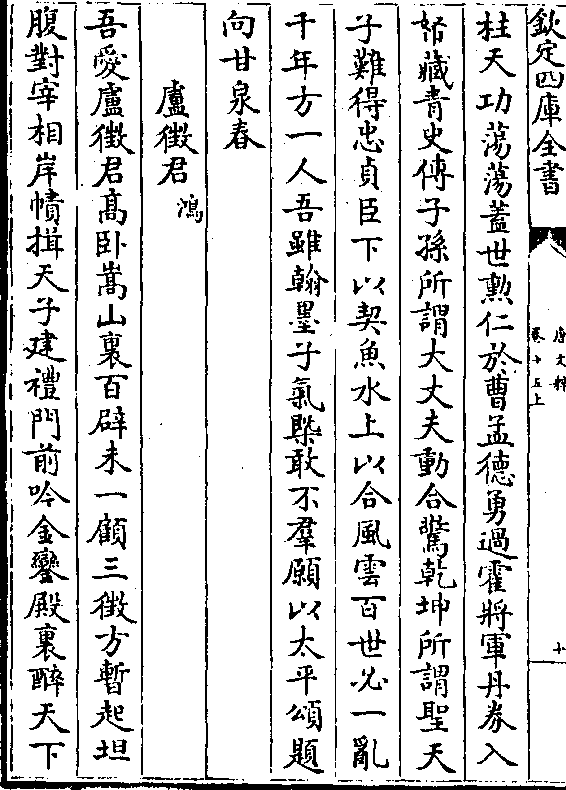 欽定四庫全書
唐文粹
卷十五上
十
柱天功蕩蕩蓋世勲仁於曹孟德勇過霍將軍丹券入
帑藏青史傳子孫所謂大丈夫動合驚乾坤所謂聖天
子難得忠貞臣下以契魚水上以合風雲百世必一亂
千年方一人吾雖翰墨子氣槩敢不羣願以太平頌題
向甘泉春
盧徴君鴻
吾愛盧徴君高卧嵩山裏百辟未一顧三徴方暫起坦
腹對宰相岸幘揖天子建禮門前吟金鑾殿裏醉天下